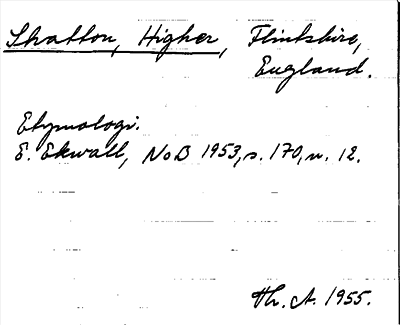 Shatton, Higher, Flintshire,
England.
Etymologi.
E. Ekwall, NoB 1953, s. 170, n. 12.
Th. A. 1955.